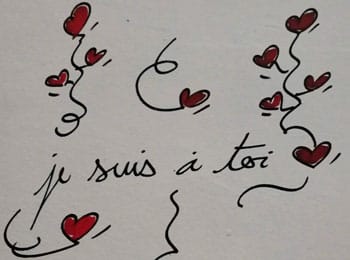 je suis à toi